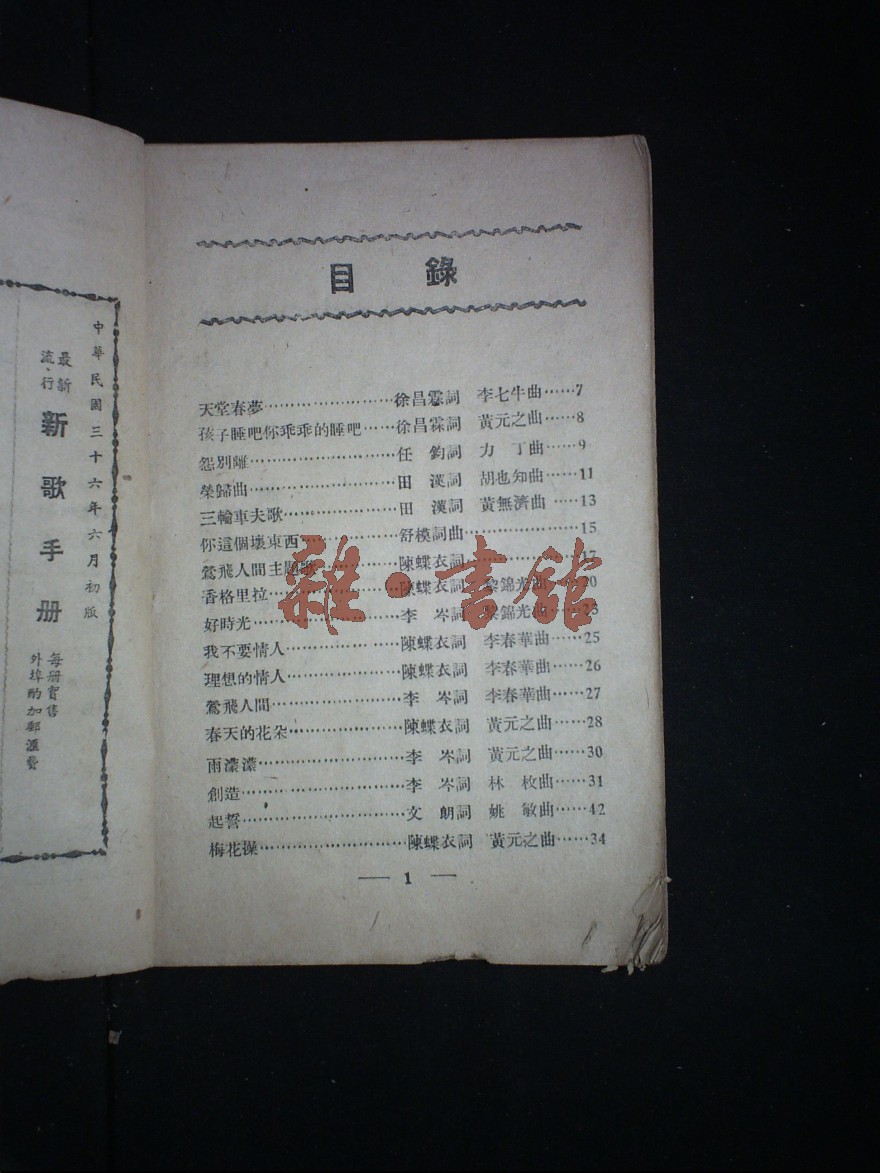 中華民國三十六年六月初版
最新
流行
新歌手册
每册實售
外埠酌加郵滙費
目錄
天堂春夢……………………徐昌霖詞 李七牛曲……7
孩子睡吧你乖乖的睡吧……徐昌霖詞 黃元之曲……8
怨別離………………………任鈞詞 力丁曲……9
榮歸曲………………………田漢詞 胡也知曲……11
三輪車夫歌…………………田漢詞 黃無濟曲……13
你這個壞東西………………舒模詞曲…………………15
鶯飛人間主題歌……………陳蝶衣詞……………17
香格里拉……………………陳蝶衣詞 黎錦光曲……20
好時光………………………李岑詞 黎錦光曲……23
我不要情人…………………陳蝶衣詞 李春華曲……25
理想的情人…………………陳蝶衣詞 李春華曲……26
鶯飛人間……………………李岑詞 李春華曲……27
春天的花朵…………………陳蝶衣詞 黃元之曲……28
雨濛濛………………………李岑詞 黃元之曲……30
創造…………………………李岑詞 林枚曲……31
起誓…………………………文朗詞 姚敏曲……42
梅花操………………………陳蝶衣詞 黃元之曲……34
— 1 —
雜·書館